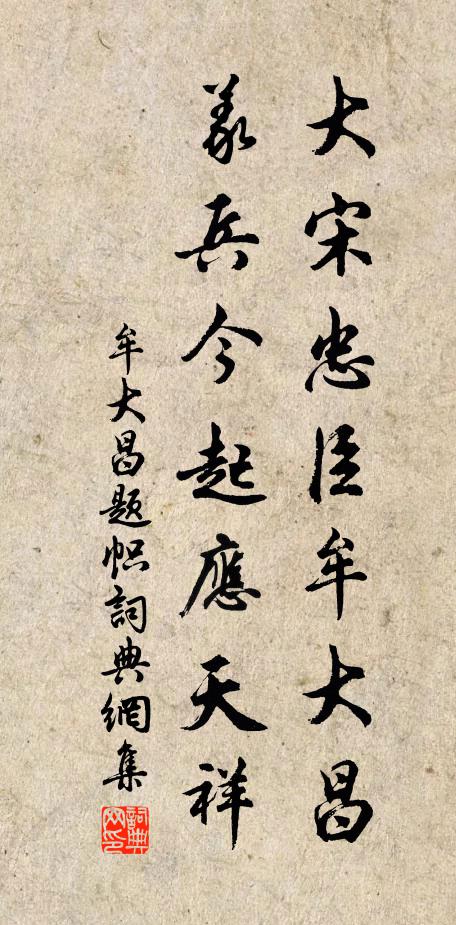 大宋忠臣牟大昌
義兵今起應天祥
牟大昌題幟詞典網集
詞典網印